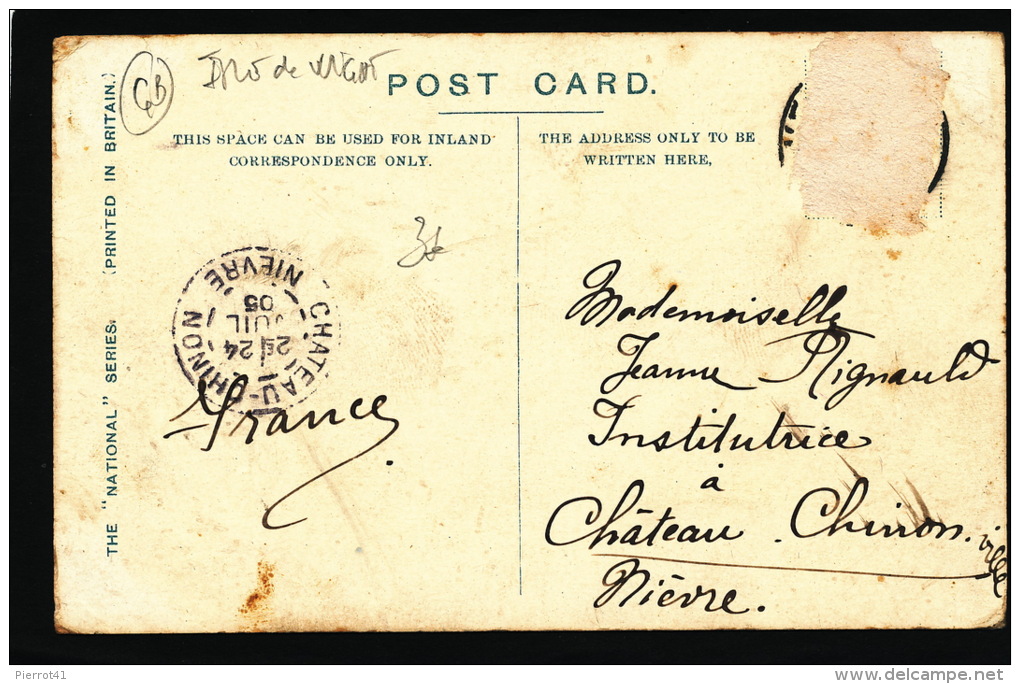 GB
POST CARD.
THIS SPACE CAN BE USED FOR INLAND
CORRESPONDENCE ONLY.
THE ADDRESS ONLY TO BE
WRITTEN HERE,
THE "NATIONAL" SERIES.
(PRINTED IN BRITAIN.)
CHATEAU-CHINON
NIÈVRE
24
JUIL
05
France
Mademoiselle
Jeanne
Institutrice
à
Château Chinon ville
Nièvre.
Pierrot41
www.delcampe.net